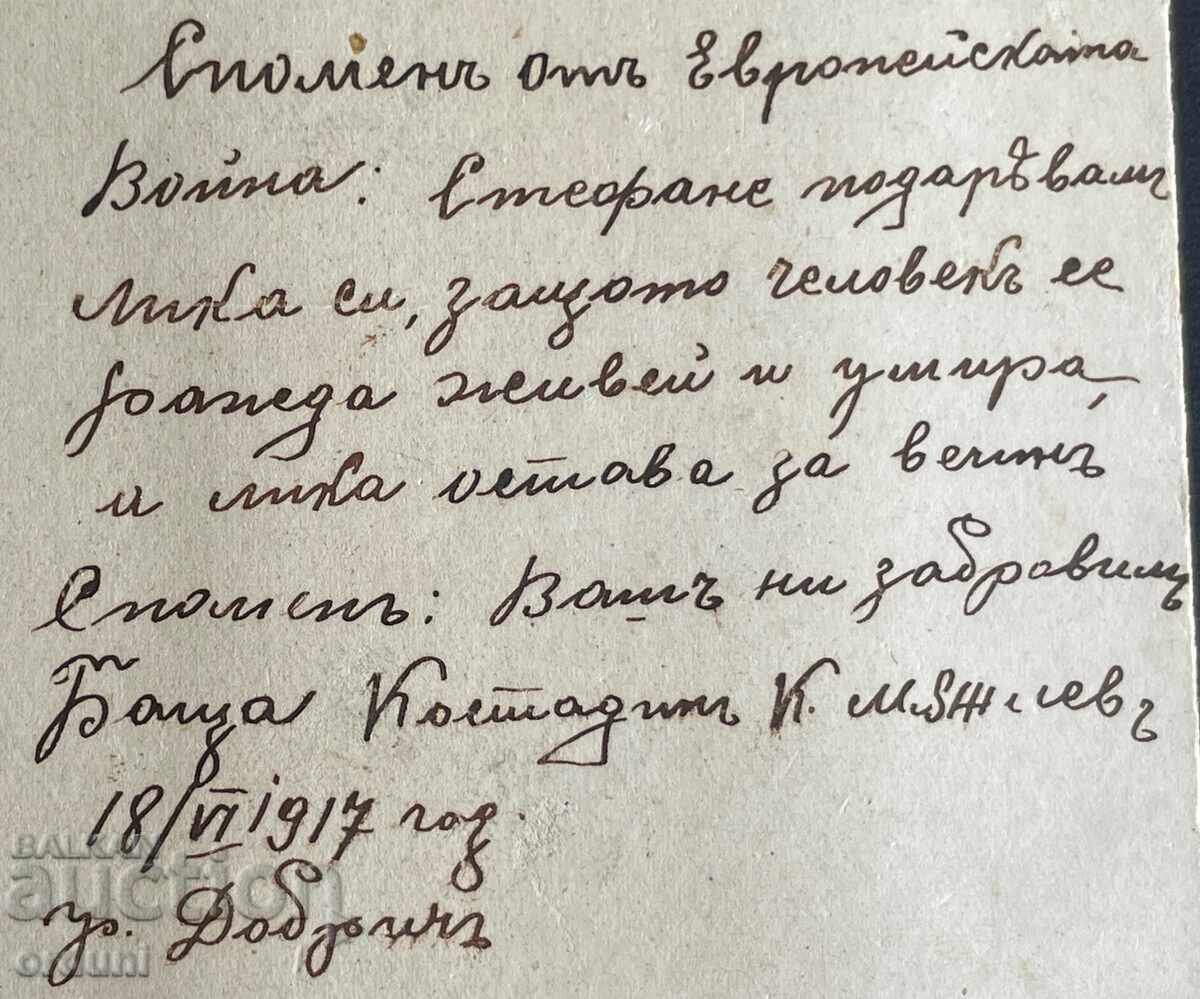 Споменъ отъ Европейската
Война: Стефане подарѣвамъ
лика си, защото человекъ се
ражда живей и умира,
и лика остава за веченъ
Споменъ: Вашъ ни забравимъ
Баща Костадинъ К.
18/VI 1917 год.
гр. Добричъ
BALKAN
auction
orduni